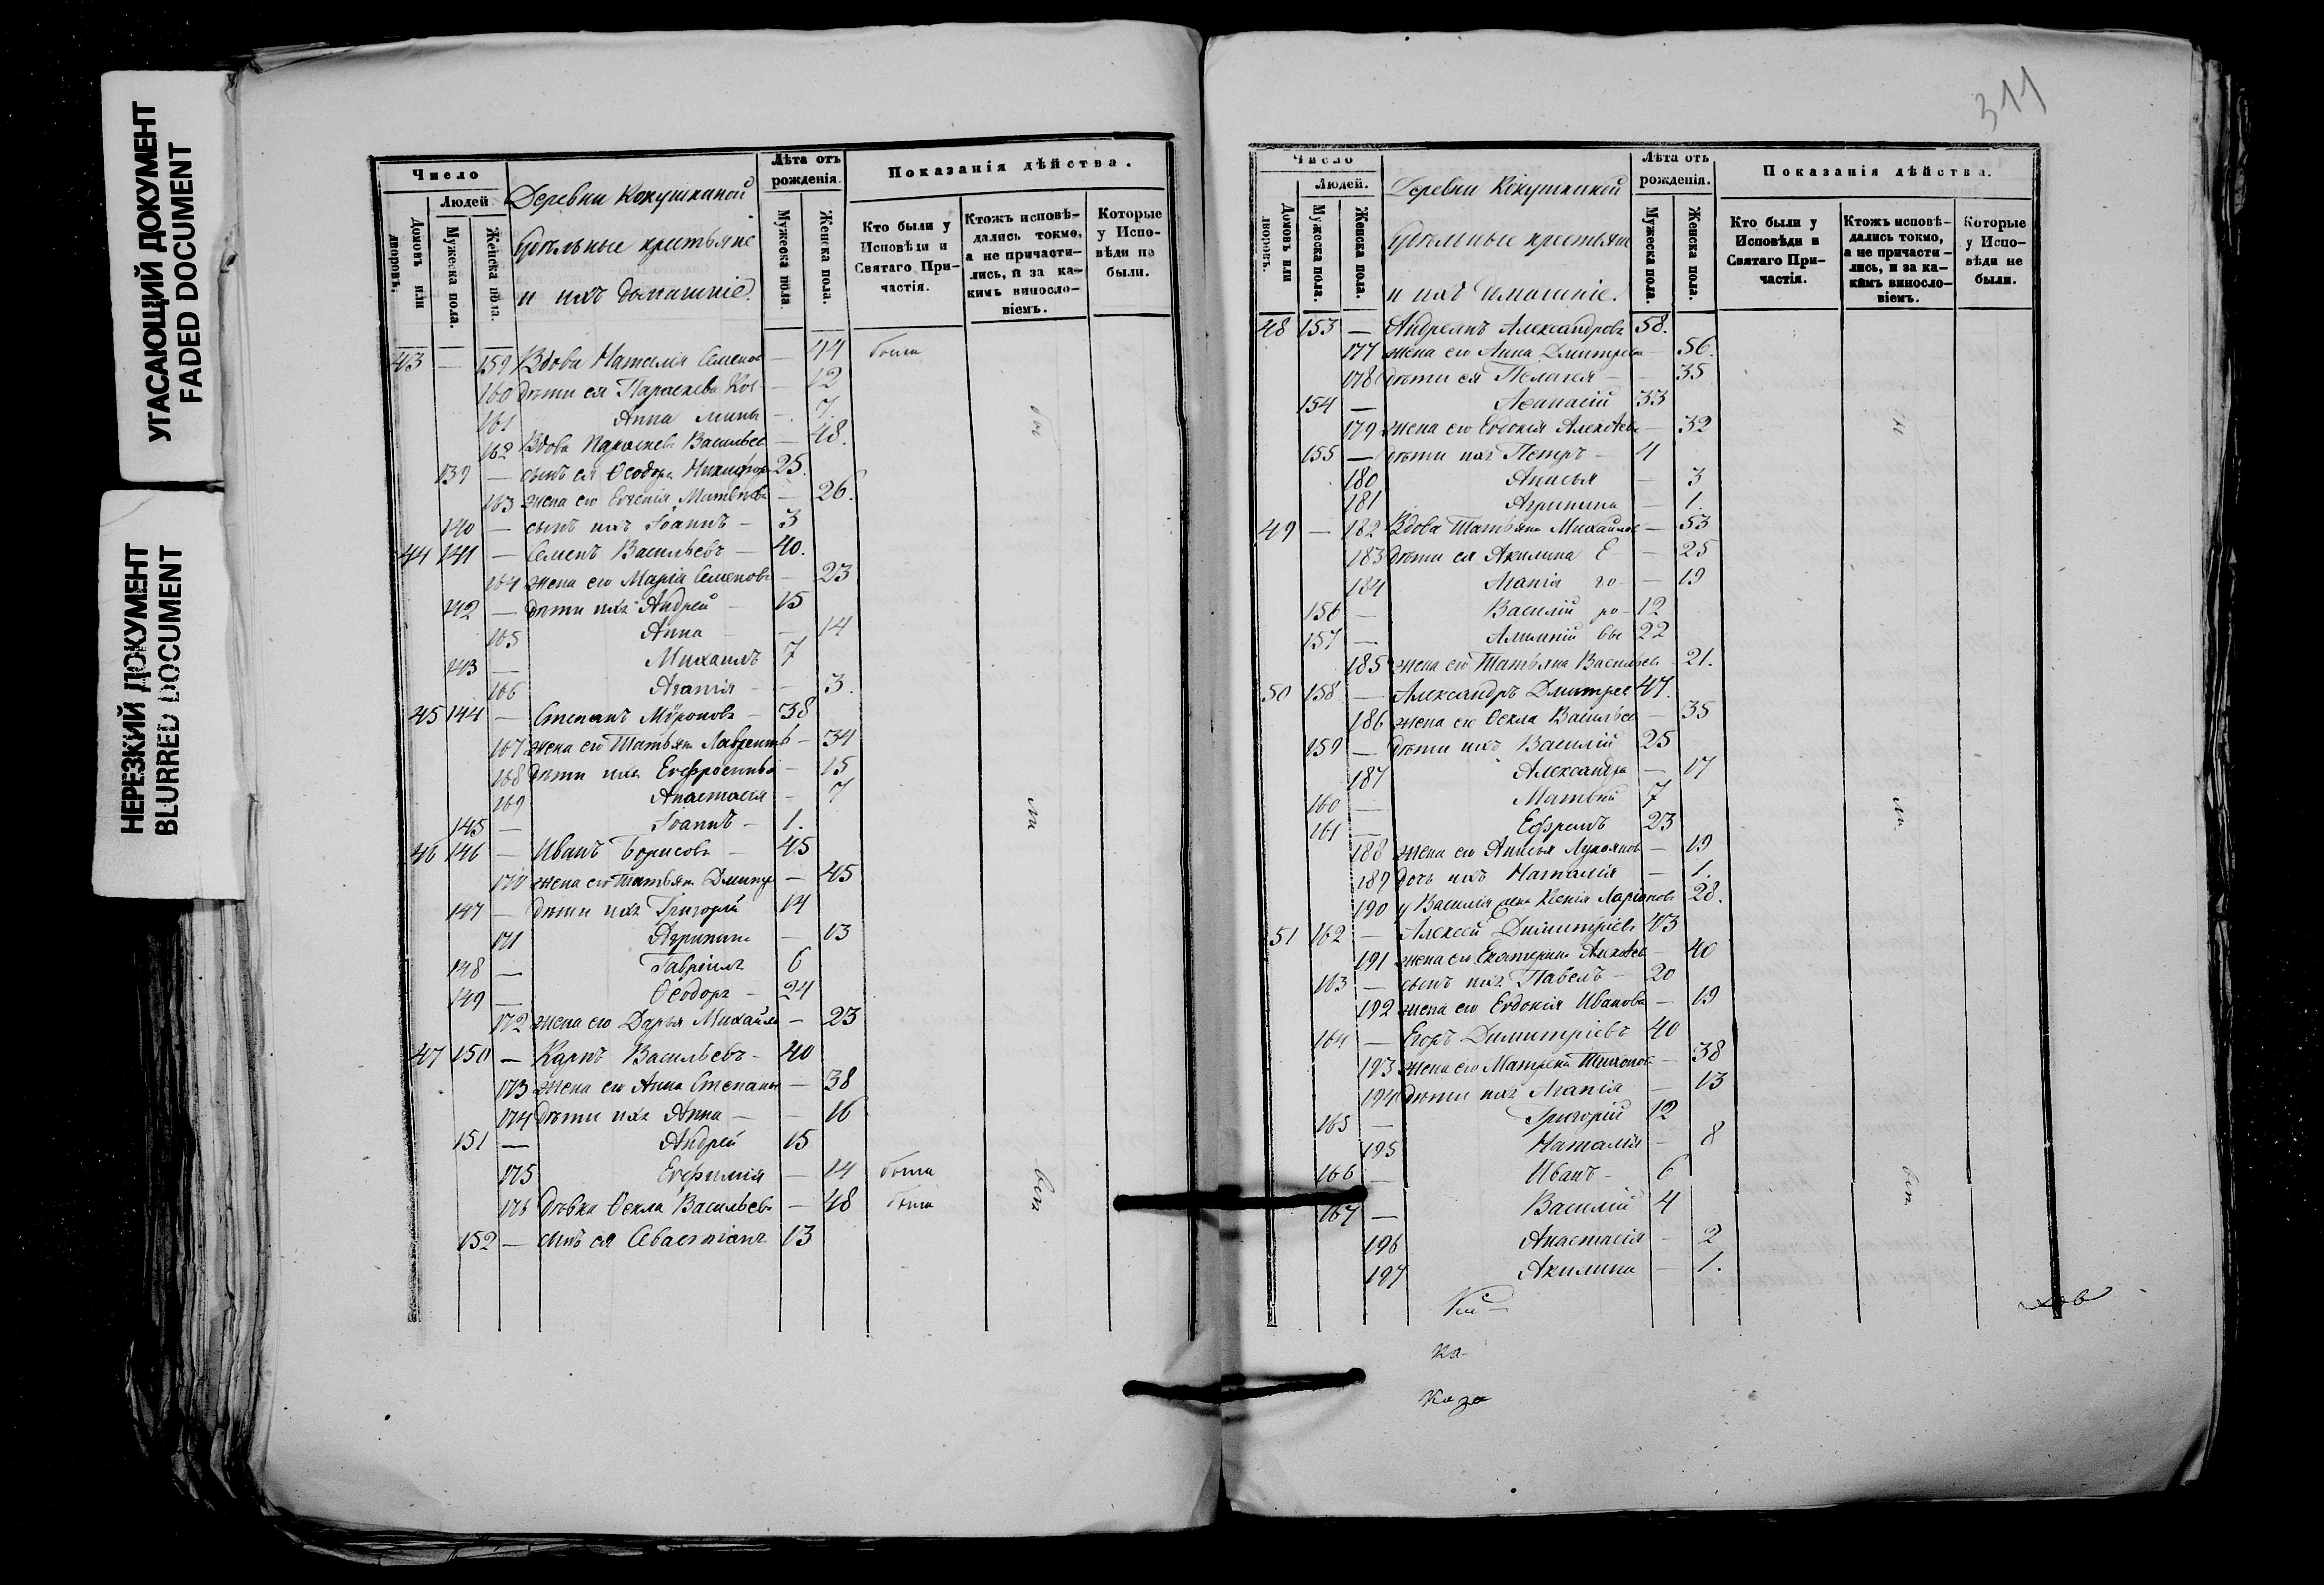 УГАСАЮЩИЙ ДОКУМЕНТ
FADED DOCUMENT
НЕРЕЗКИЙ ДОКУМЕНТ
BLURRED DOCUMENT
Число
Людей.
Домовъ или дворовъ.
Мужеска пола.
Женска пола.
Деревни Кокушкиной
Удѣльные крестьяне
и ихъ домашніе.
Лѣта отъ рожденія.
Мужеска пола.
Женска пола.
Показанія дѣйства.
Кто были у Исповѣди и Святаго Причастія.
Ктожъ исповѣдались токмо, а не причастились, и за какимъ винословіемъ.
Которые у Исповѣди не были.
43 — 159 Вдова Наталія Семенов — 44
160 дѣти ея Параскева — 12
161 Анна — 7.
162 Вдова Параскев Васильев — 48.
139 — сынъ ея Ѳеодоръ Никифор 25.
163 жена его Евгенія Матвѣев — 26.
140 — сынъ ихъ Іоаннъ — 3
44 141 — Семенъ Васильевъ — 40.
164 жена его Марія Семенова — 23
142 — дѣти ихъ Андрей — 15
165 Анна — 14
143 — Михаилъ 7
166 Агапія — 3.
45 144 — Степанъ Мѵроновъ — 38
167 жена его Татьяна Лаврентьев — 34
168 дѣти ихъ Евфросинья — 15
169 Анастасія — 7
145 — Іоаннъ — 1.
46 146 — Иванъ Борисовъ — 45
170 жена его Татьяна Дмитр — 45
147 — дѣти ихъ Григорій 14
171 Агрипина — 13
148 — Гавріилъ 6
149 — Ѳеодоръ — 24
172 жена его Дарья Михайло — 23
47 150 — Карпъ Васильевъ — 40
173 жена его Анна Степанов — 38
174 дѣти ихъ Анна — 16
151 — Андрей 15
175 Евфимія — 14
176 дѣвка Ѳекла Васильев — 48
152 — сынъ ея Севастіанъ 13
ли
311
Число
Людей.
Домовъ или дворовъ.
Мужеска пола.
Женска пола.
Деревни Кокушкиной
Удѣльные крестьяне
и ихъ домашніе.
Лѣта отъ рожденія.
Мужеска пола.
Женска пола.
Показанія дѣйства.
Кто были у Исповѣди и Святаго Причастія.
Ктожъ исповѣдались токмо, а не причастились, и за какимъ винословіемъ.
Которые у Исповѣди не были.
48 153 — Андреянъ Александровъ 58.
177 жена его Анна Дмитрева — 56.
178 дѣти ея Пелагея — 35
154 — Аѳанасій 33
179 жена его Евдокія Алексѣев — 32
155 — дѣти ихъ Петръ — 4
180 Анисья — 3
181 Агрипина — 1.
49 — 182 Вдова Татьяна Михайлов — 53
183 дѣти ея Акилина Е — 25
184 Агапія го — 19
156 — Василій ро — 12
157 — вы 22
185 жена его Татьяна Васильев 21.
50 158 — Александръ Дмитрев 47.
186 жена его Ѳекла Васильев — 35
159 — дѣти ихъ Василій 25
187 Александра — 17
160 — Матвѣй 7
161 — Ефремъ 23
188 жена его Анисья Лукоянов — 19
189 дочь ихъ Наталія — 1.
190 у Василія жена Ксенія Ларіонов 28.
51 162 — Алексей Димитріевъ 43
191 жена его Екатерина Алексѣев — 40
163 — сынъ ихъ Павелъ — 20
192 жена его Евдокія Иванова — 19
164 — Егоръ Димитріевъ 40
193 жена его Матрена Тихонов — 38
194 дѣти ихъ Агапія — 13
165 — Григорій 12
195 Наталія — 8
166 — Иванъ — 6
167 — Василій 4
196 Анастасія — 2
197 Акилина — 1.
ли
ка